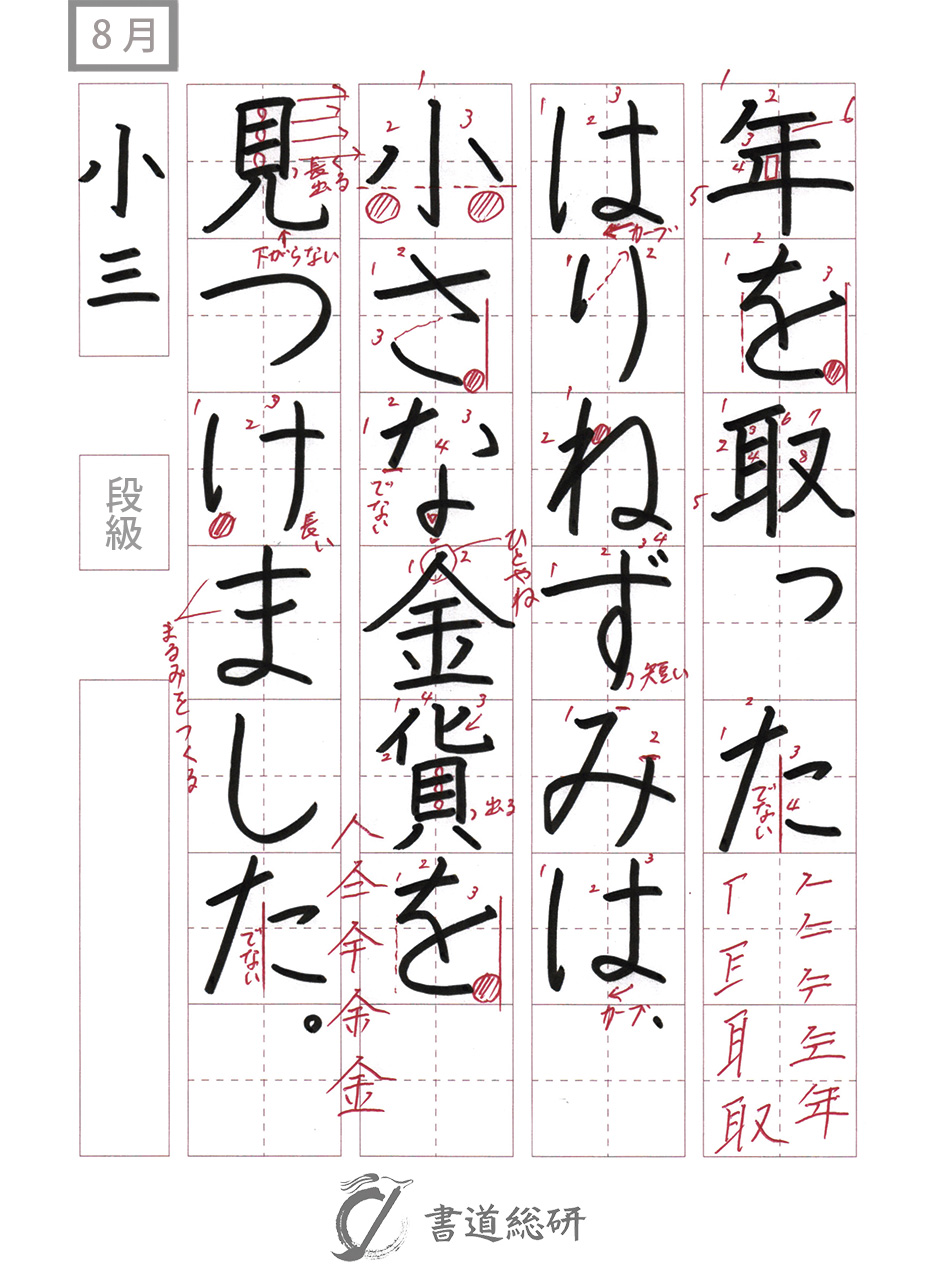 8月
年を取った
はりねずみは、
小さな金貨を
見つけました。
小三
段級
でない
カーブ
短い
カーブ
でない
ひとやね
出る
長く出る
下がらない
長い
まるみをつくる
でない
書道総研